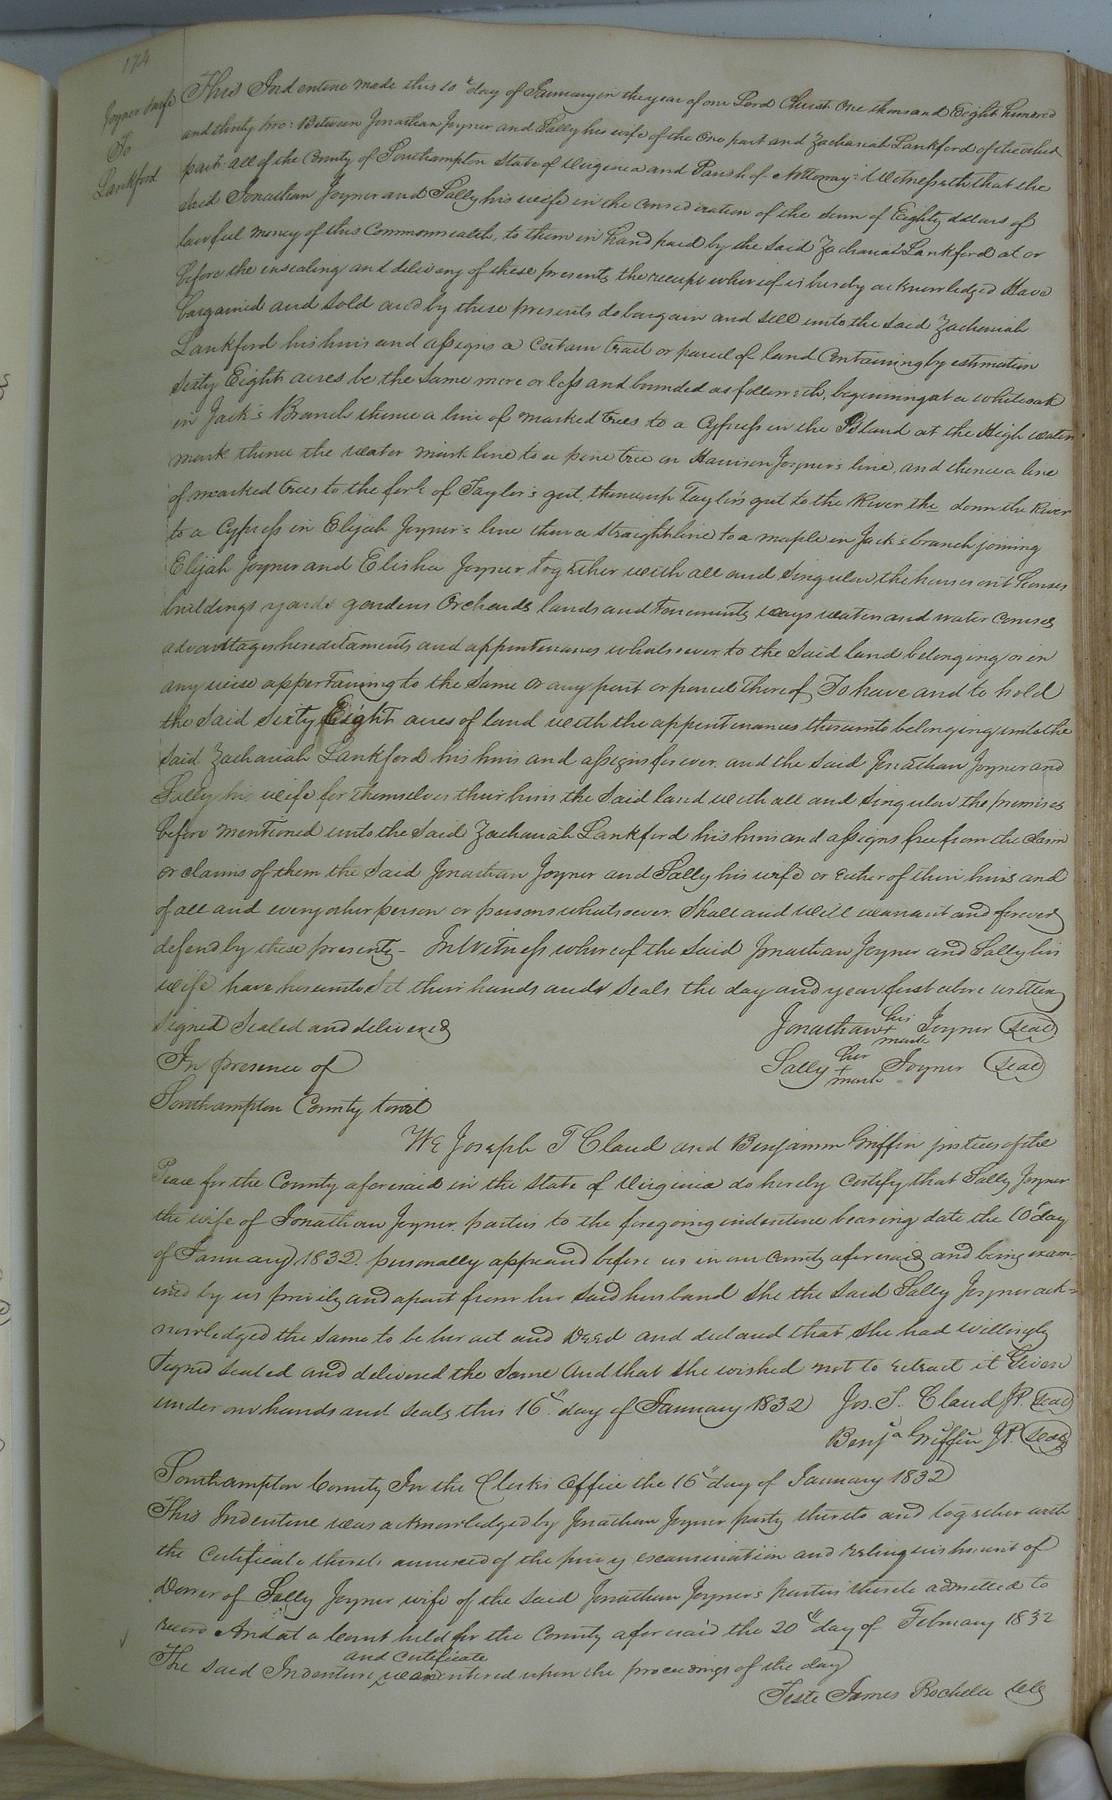 174
Joyner & wife
To
Lankford
This Indenture made this 10th day of January in the year of our Lord Christ One thousand Eight hundred
and thirty two: Between Jonathan Joyner and Sally his wife of the one part and Zachariah Lankford of the other
part all of the County of Southampton State of Virginia and Parish of Nottoway: Witnesseth that the
said Jonathan Joyner and Sally his wife in the consideration of the sum of Eighty dollars of
lawful money of this Commonwealth, to them in hand paid by the said Zachariah Lankford at or
before the ensealing and delivery of these presents, the receipt whereof is hereby acknowledged Have
bargained and sold and by these presents do bargain and sell unto the said Zachariah
Lankford his heirs and assigns a certain tract or parcel of land Containing by estimation
Sixty Eight acres be the same more or less and bounded as followeth, beginning at a white oak
in Jack's Branch thence a line of marked trees to a Cypress in the Island at the High water
mark thence the water mark line to a pine tree in Harrison Joyner's line, and thence a line
of marked trees to the fork of Taylor's gut, thence up Taylor's gut to the River the down the River
to a Cypress in Elijah Joyner's line then a straight line to a maple in Jack's branch joining
Elijah Joyner and Elisha Joyner together with all and singular the houses out houses
buildings yards gardens Orchards lands and tenements ways waters and water courses
advantages hereditaments and appurtenances whatsoever to the said land belonging or in
any wise appertaining to the same or any part or parcel thereof To have and to hold
the said Sixty Eight acres of land with the appurtenances thereunto belonging unto the
said Zachariah Lankford his heirs and assigns forever. and the said Jonathan Joyner and
Sally his wife for themselves their heirs the said land with all and singular the premises
before mentioned unto the said Zachariah Lankford his heirs and assigns free from the claim
or claims of them the said Jonathan Joyner and Sally his wife or either of their heirs and
of all and every other person or persons whatsoever. Shall and will warrant and forever
defend by these presents - In Witness whereof the said Jonathan Joyner and Sally his
wife have hereunto Set their hands and seals the day and year first above written
Signed Sealed and delivered Jonathan his + mark Joyner (Seal)
In presence of Sally her + mark Joyner (Seal)
Southampton County to wit
We Joseph T Claud and Benjamin Griffin justices of the
Peace for the County aforesaid in the State of Virginia do hereby certify that Sally Joyner
the wife of Jonathan Joyner, parties to the foregoing indenture bearing date the 10" day
of January 1832. personally appeared before us in our County aforesaid and being exam-
ined by us privily and apart from her said husband She the said Sally Joyner ack=
nowledged the same to be her act and Deed and declared that she had willingly
Signed Sealed and delivered the same And that she wished not to retract it Given
under our hands and Seals this 16" day of January 1832 Jos. T. Claud JP. (Seal)
Benja Griffin JP. (Seal)
Southampton County In the Clerks Office the 16" day of January 1832
This Indenture was acknowledged by Jonathan Joyner party thereto and together with
the certificate thereto annexed of the privy examination and relinquishment of
Dower of Sally Joyner wife of the said Jonathan Joyner's parties thereto admitted to
record And at a Court held for the County aforesaid the 20" day of February 1832
and certificate
The said Indenture was entered upon the proceedings of the day
Teste James Rochelle clk